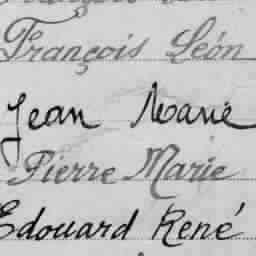 François León
Jean Marie
Pierre Marie
Edouard René